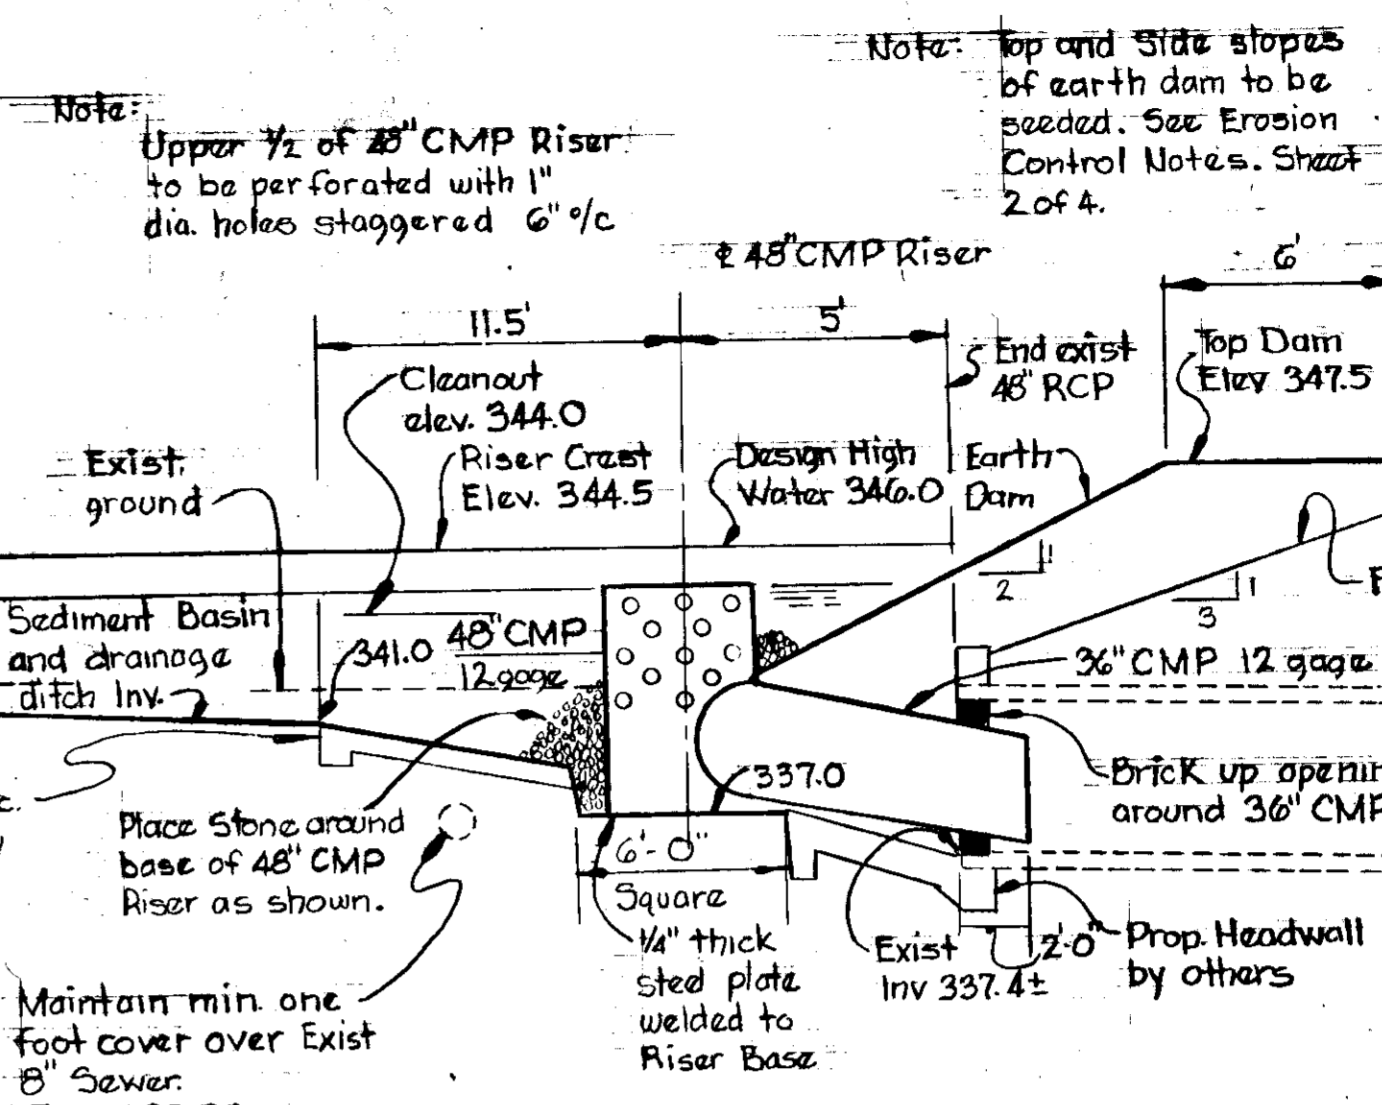 Note: Top and Side slopes
of earth dam to be
seeded. See Erosion
Control Notes. Sheet
2 of 4.
Note:
Upper 1/2 of 48" CMP Riser
to be perforated with 1"
dia. holes staggered 6" o/c
℄ 48" CMP Riser
6'
11.5'
5'
End exist
48" RCP
Top Dam
Elev 347.5
Cleanout
elev. 344.0
Exist.
ground
Riser Crest
Elev. 344.5
Design High
Water 346.0
Earth
Dam
1
2
1
3
F
Sediment Basin
and drainage
ditch Inv.
341.0
48" CMP
12 gage
36" CMP 12 gage
337.0
Brick up openin
around 36" CMP
c.
Place Stone around
base of 48" CMP
Riser as shown.
6'-0"
Square
1/4" thick
steel plate
welded to
Riser Base
Exist
Inv 337.4±
2'-0"
Prop. Headwall
by others
Maintain min. one
foot cover over Exist
8" Sewer.